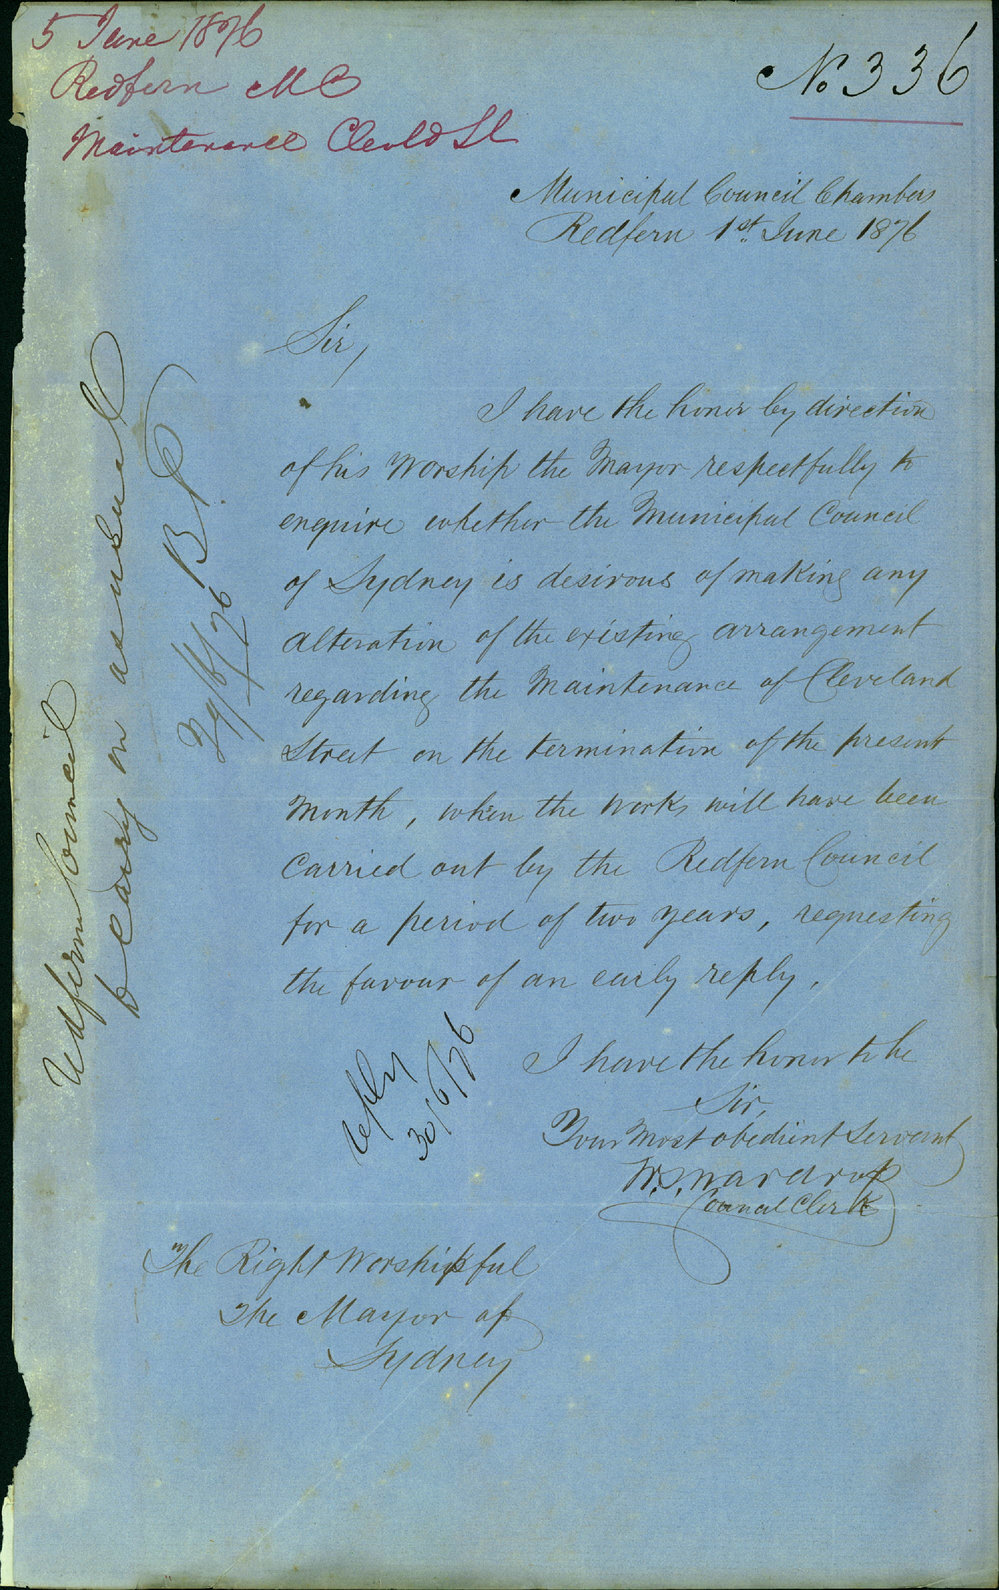 5 June 1876
Redfern MC
Maintenance Clevld St
No 336
Municipal Council Chambers
Redfern 1st June 1876
Sir,
I have the honor by direction
of his Worship the Mayor respectfully to
enquire whether the Municipal Council
of Sydney is desirous of making any
alteration of the existing arrangement
regarding the Maintenance of Cleveland
Street on the termination of the present
Month, when the works will have been
carried out by the Redfern Council
for a period of two years, requesting
the favour of an early reply.
I have the honor to be
Sir,
Your Most obedient Servant
W.S. Wardrop
Council Clerk
reply
30/6/76
The Right Worshipful
The Mayor of
Sydney
Redfern Council
to carry on as usual
29/6/76 B P.